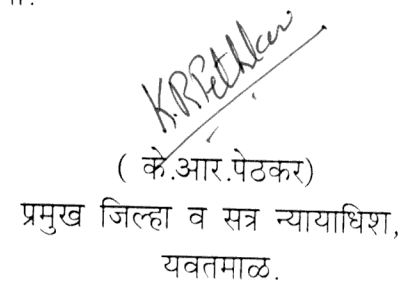 K.R.Pethkar
( के.आर.पेठकर)
प्रमुख जिल्हा व सत्र न्यायाधिश,
यवतमाळ.